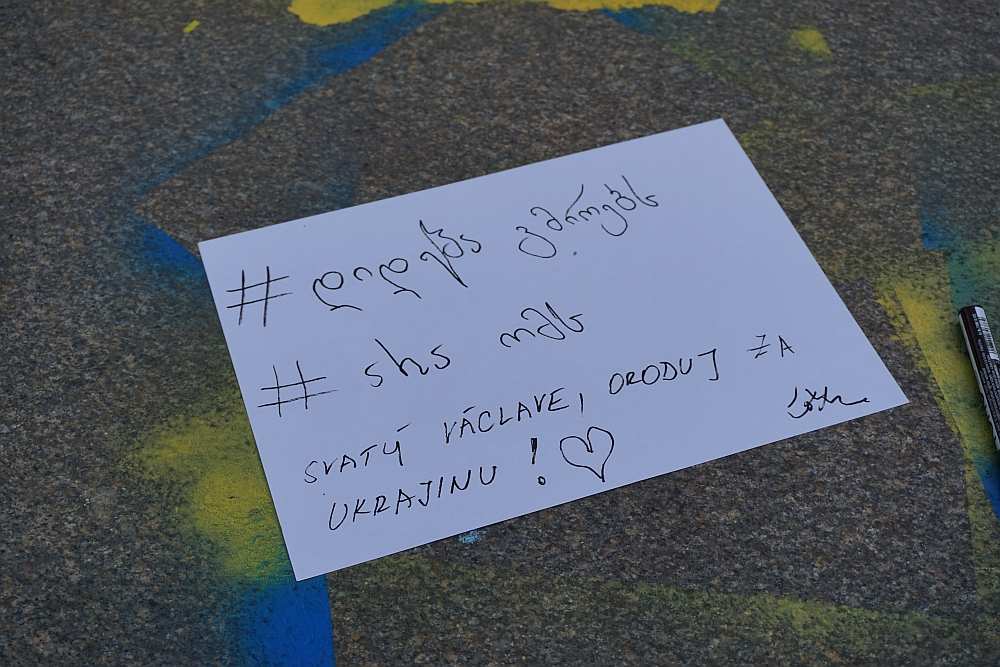 #დიდება გმირებს
#არა ომს
SVATÝ VÁCLAVE, ORODUJ ZA
UKRAJINU! ♡